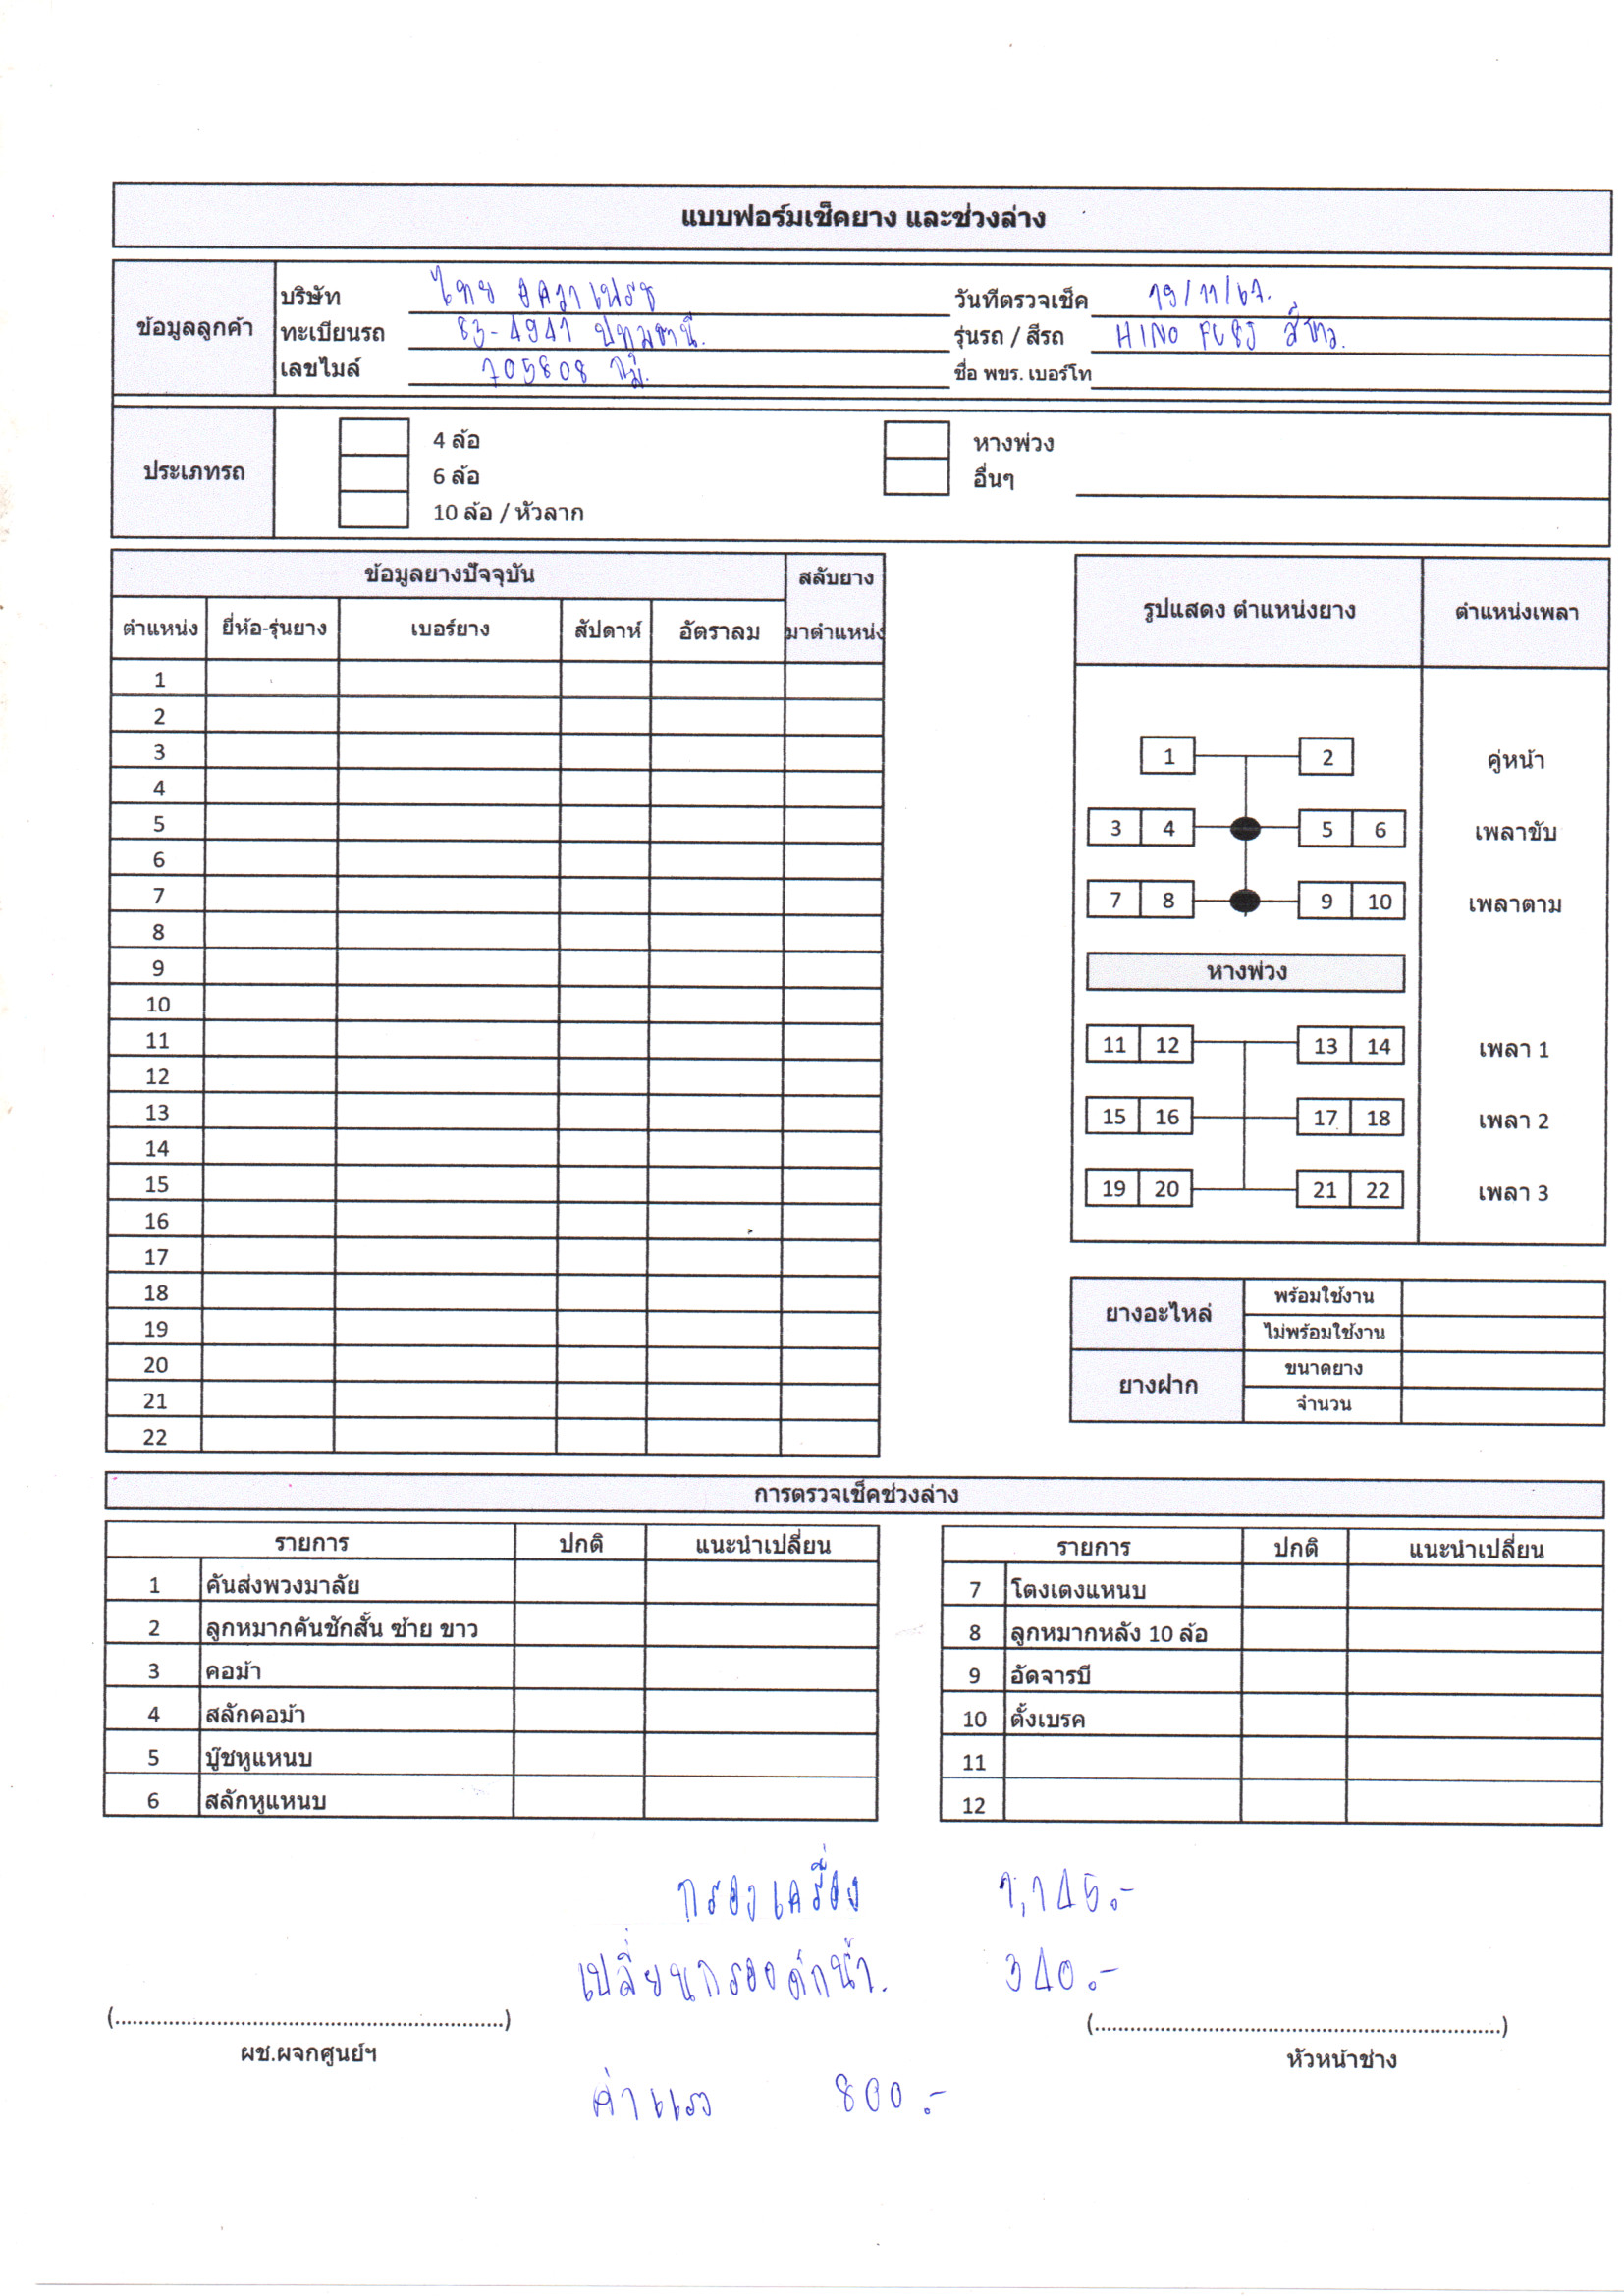 แบบฟอร์มเช็คยาง และช่วงล่าง
ข้อมูลลูกค้า
บริษัท ไทย อควา เฟรช วันที่ตรวจเช็ค 19/11/67.
ทะเบียนรถ 83-4941 ปทุมธานี. รุ่นรถ / สีรถ HINO สีขาว.
เลขไมล์ 705808 กม. ชื่อ พขร. เบอร์โท
ประเภทรถ
4 ล้อ หางพ่วง
6 ล้อ อื่นๆ
10 ล้อ / หัวลาก
ข้อมูลยางปัจจุบัน สลับยาง
ตำแหน่ง ยี่ห้อ-รุ่นยาง เบอร์ยาง สัปดาห์ อัตราลม มาตำแหน่ง
1
2
3
4
5
6
7
8
9
10
11
12
13
14
15
16
17
18
19
20
21
22
รูปแสดง ตำแหน่งยาง ตำแหน่งเพลา
1 2 คู่หน้า
3 4 5 6 เพลาขับ
7 8 9 10 เพลาตาม
หางพ่วง
11 12 13 14 เพลา 1
15 16 17 18 เพลา 2
19 20 21 22 เพลา 3
ยางอะไหล่
พร้อมใช้งาน
ไม่พร้อมใช้งาน
ยางฝาก
ขนาดยาง
จำนวน
การตรวจเช็คช่วงล่าง
รายการ ปกติ แนะนำเปลี่ยน
1 คันส่งพวงมาลัย
2 ลูกหมากคันชักสั้น ซ้าย ขาว
3 คอม้า
4 สลักคอม้า
5 บู๊ชหูแหนบ
6 สลักหูแหนบ
รายการ ปกติ แนะนำเปลี่ยน
7 โตงเตงแหนบ
8 ลูกหมากหลัง 10 ล้อ
9 อัดจารบี
10 ตั้งเบรค
11
12
กรองเครื่อง 1,145.-
เปลี่ยนกรองดักน้ำ. 340.-
(....................) (....................)
ผช.ผจกศูนย์ฯ หัวหน้าช่าง
ค่าแรง 800.-